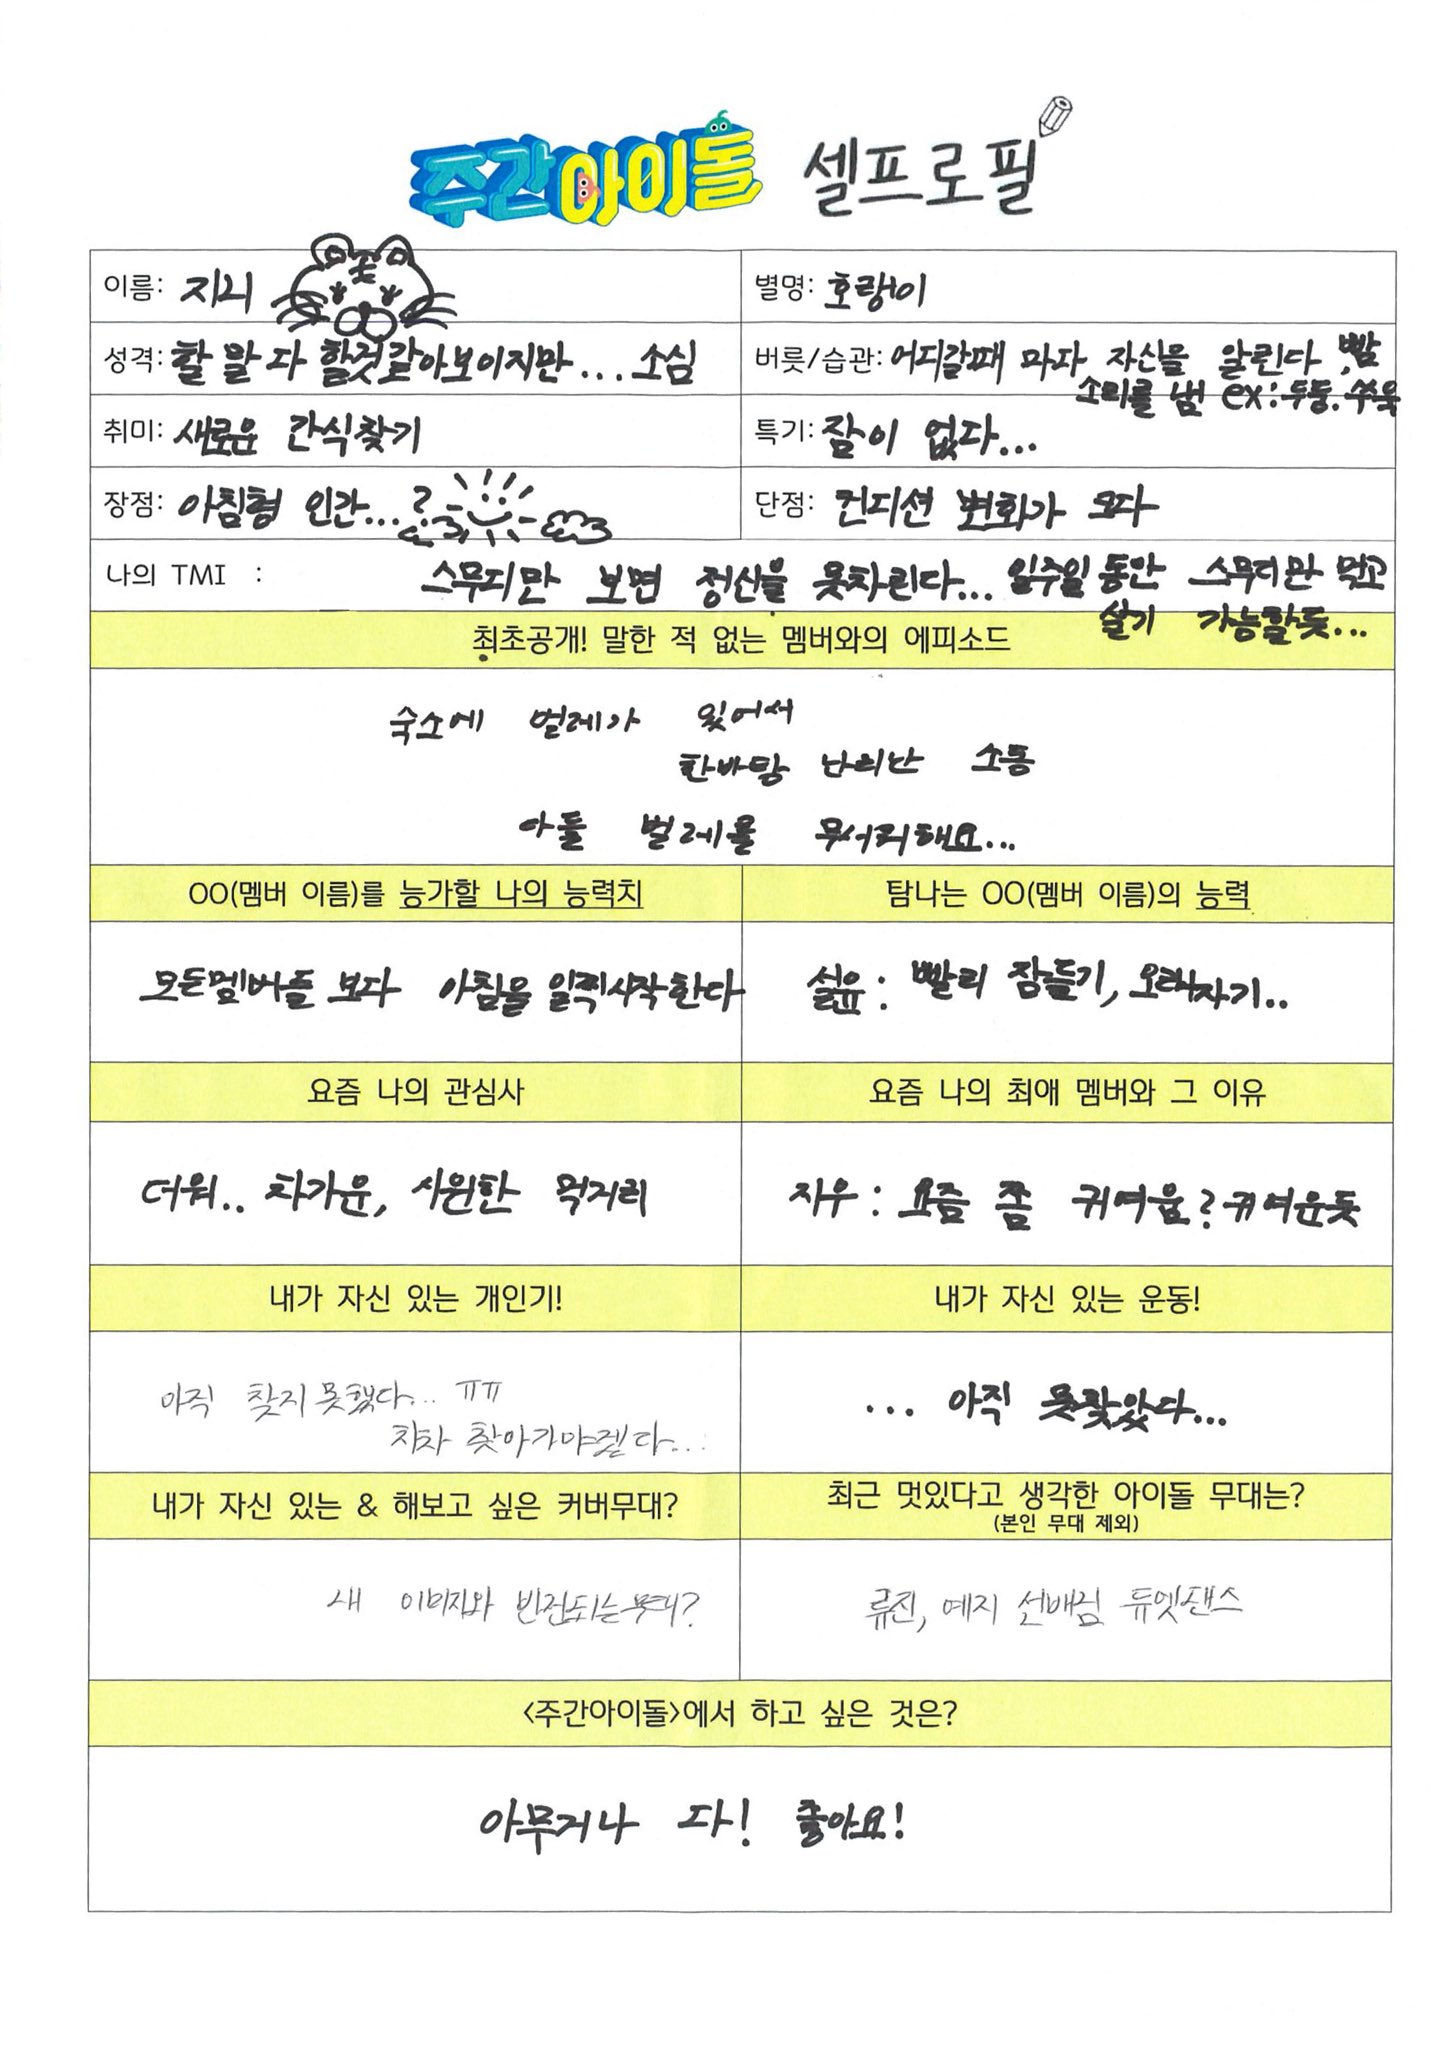 주간아이돌 셀프로필
이름: 지니
별명: 호랑이
성격: 할 말 다 할것같아보이지만... 소심
버릇/습관: 어디갈때 마다 자신을 알린다, 빰
소리를 냄 ex: 두둥. 쑤욱
취미: 새로운 간식찾기
특기: 잠이 없다...
장점: 아침형 인간...?
단점: 컨디션 변화가 오다
나의 TMI : 스무디만 보면 정신을 못차린다... 일주일 동안 스무디만 먹고
살기 가능할듯...
최초공개! 말한 적 없는 멤버와의 에피소드
숙소에 벌레가 있어서
한바탕 난리난 소동
다들 벌레를 무서워해요...
OO(멤버 이름)를 능가할 나의 능력치
탐나는 OO(멤버 이름)의 능력
모든멤버들 보다 아침을 일찍시작한다
설윤: 빨리 잠들기, 오래자기..
요즘 나의 관심사
요즘 나의 최애 멤버와 그 이유
더워.. 차가운, 시원한 먹거리
지우: 요즘 쫌 귀여움? 귀여운듯
내가 자신 있는 개인기!
내가 자신 있는 운동!
아직 찾지 못했다... ㅠㅠ
차차 찾아가야겠다...
... 아직 못찾았다...
내가 자신 있는 & 해보고 싶은 커버무대?
최근 멋있다고 생각한 아이돌 무대는?
(본인 무대 제외)
내 이미지와 반전되는무대?
류진, 예지 선배님 듀엣댄스
<주간아이돌>에서 하고 싶은 것은?
아무거나 다! 좋아요!